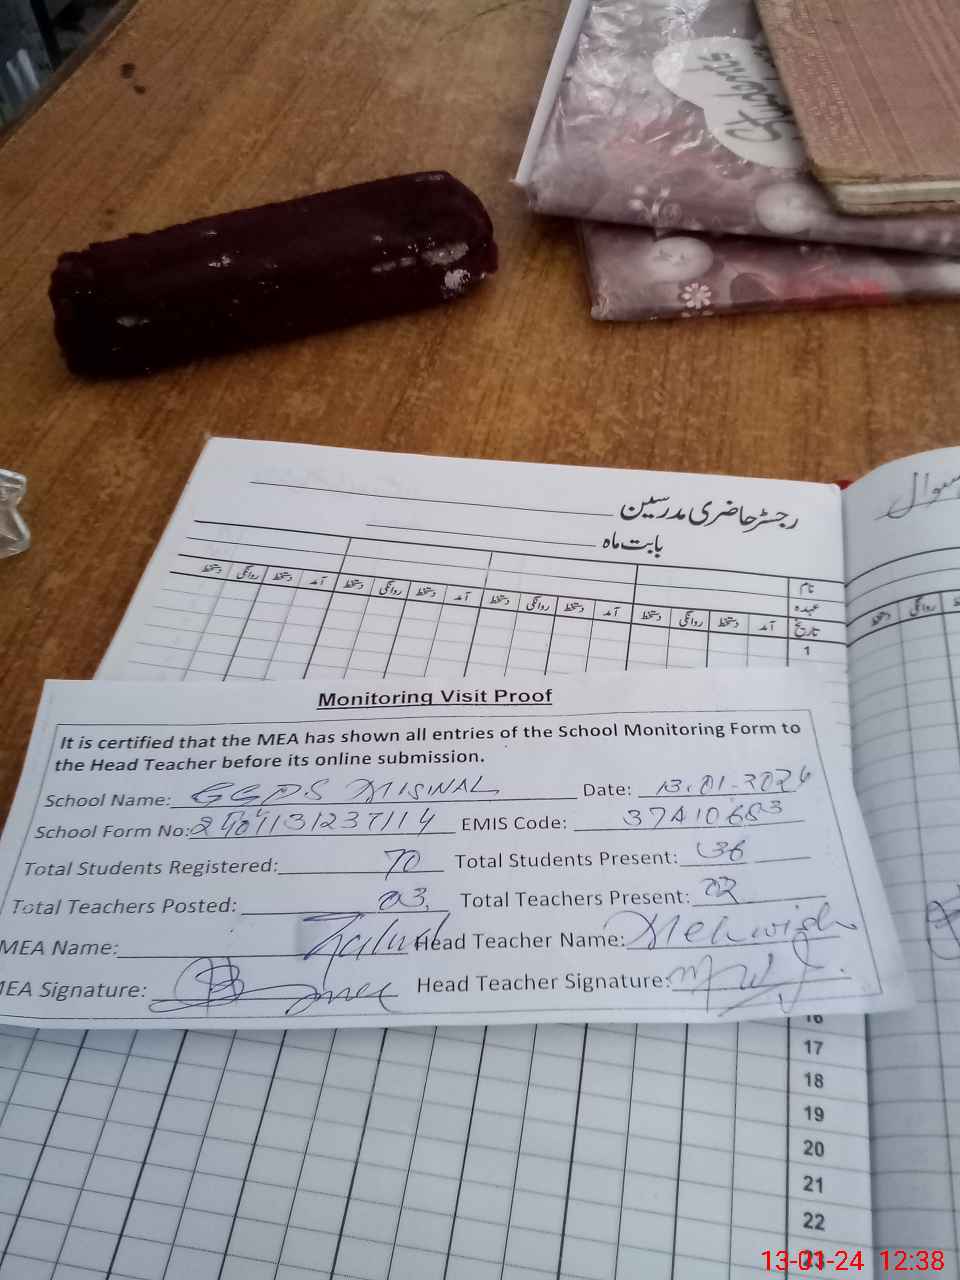 Students
رجسٹر حاضری مدرسین
بابت ماہ
نام
عہدہ
تاریخ آمد دستخط روانگی دستخط آمد دستخط روانگی دستخط آمد دستخط روانگی دستخط آمد دستخط روانگی دستخط
1
روانگی دستخط
Monitoring Visit Proof
It is certified that the MEA has shown all entries of the School Monitoring Form to
the Head Teacher before its online submission.
School Name: GGPS MISWAL Date: 13.01.2024
School Form No: EMIS Code: 37410683
Total Students Registered: 70 Total Students Present: 36
Total Teachers Posted: 03 Total Teachers Present: 02
MEA Name: Head Teacher Name: Mehwish
MEA Signature: Head Teacher Signature:
16
17
18
19
20
21
22
23
13-01-24 12:38